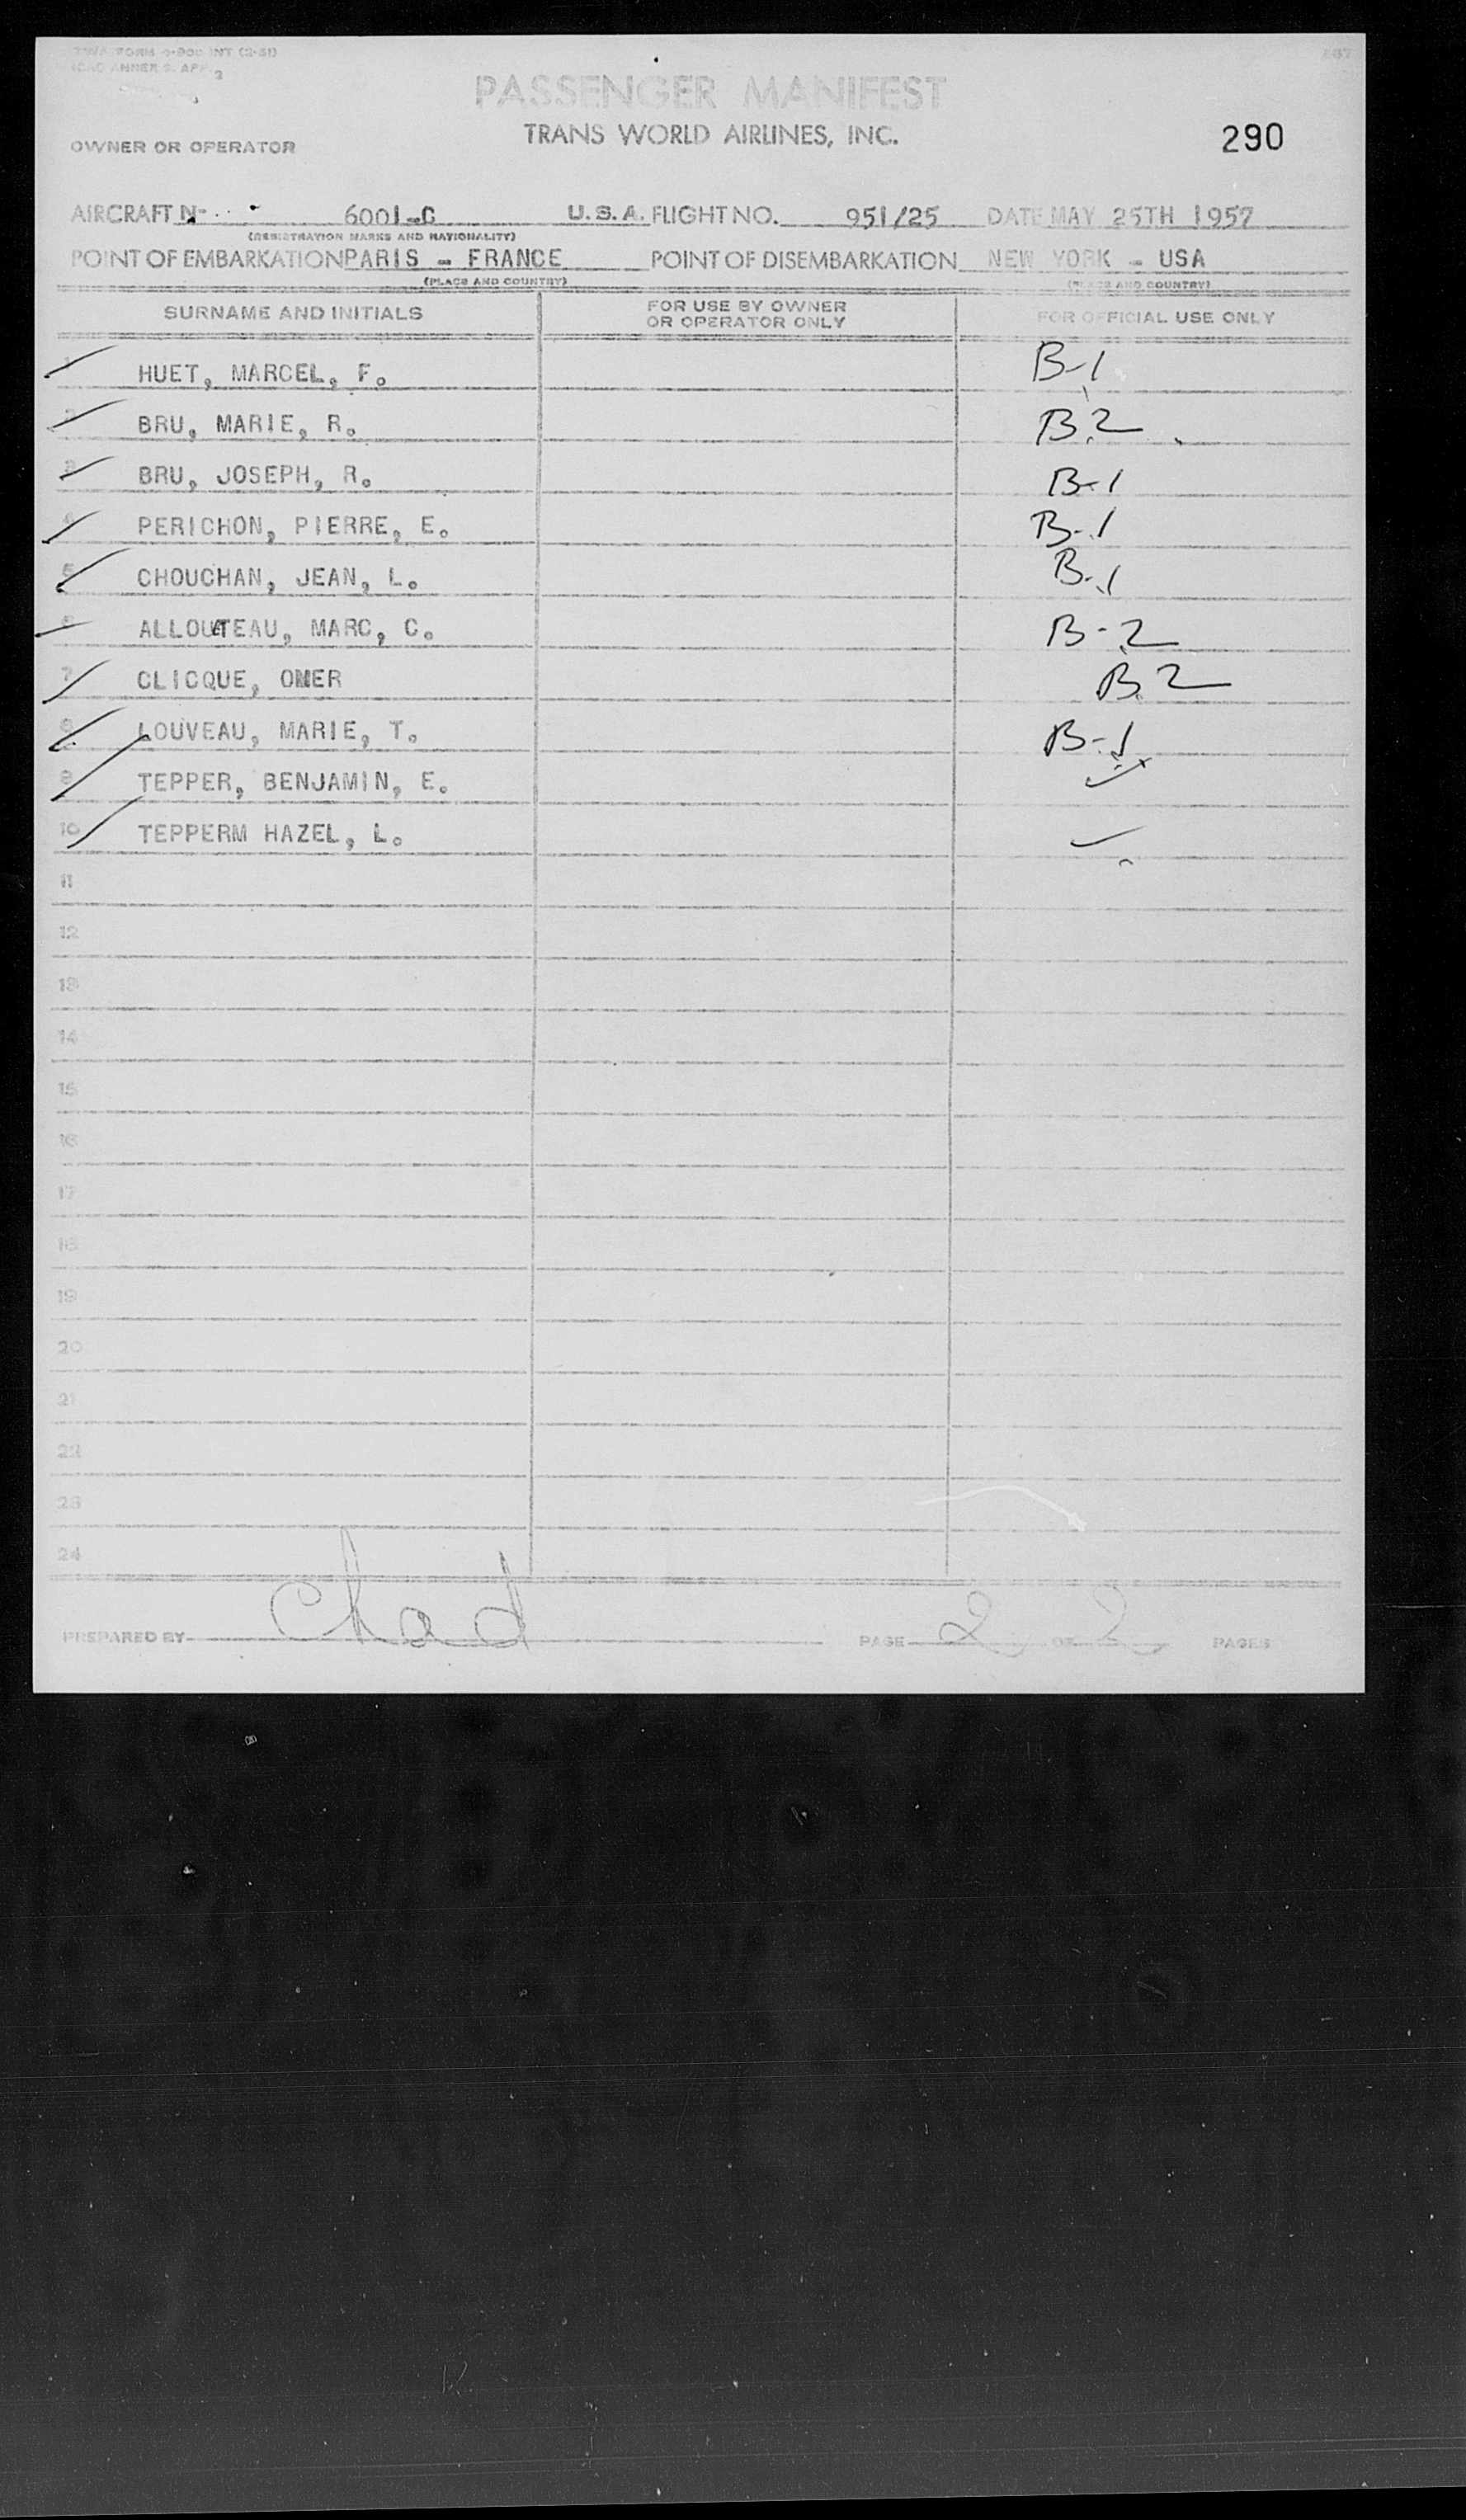 TWA FORM INT (3-51)
ICAO ANNEX 9. APP. 3
PASSENGER MANIFEST
TRANS WORLD AIRLINES, INC.
290
OWNER OR OPERATOR
AIRCRAFT N- 6001-C U.S.A. FLIGHT NO. 951/25 DATE MAY 25TH 1957
(REGISTRATION MARKS AND NATIONALITY)
POINT OF EMBARKATION PARIS - FRANCE POINT OF DISEMBARKATION NEW YORK - USA
(PLACE AND COUNTRY) (PLACE AND COUNTRY)
SURNAME AND INITIALS FOR USE BY OWNER OR OPERATOR ONLY FOR OFFICIAL USE ONLY
1 HUET, MARCEL, F. B-1
2 BRU, MARIE, R. B2
3 BRU, JOSEPH, R. B-1
4 PERICHON, PIERRE, E. B-1
5 CHOUCHAN, JEAN, L. B-1
6 ALLOUTEAU, MARC, C. B-2
7 CLICQUE, OMER B2
8 LOUVEAU, MARIE, T. B-1
9 TEPPER, BENJAMIN, E. ✓
10 TEPPERM HAZEL, L. ✓
11
12
13
14
15
16
17
18
19
20
21
22
23
24
PREPARED BY Chad PAGE 2 OF 2 PAGES